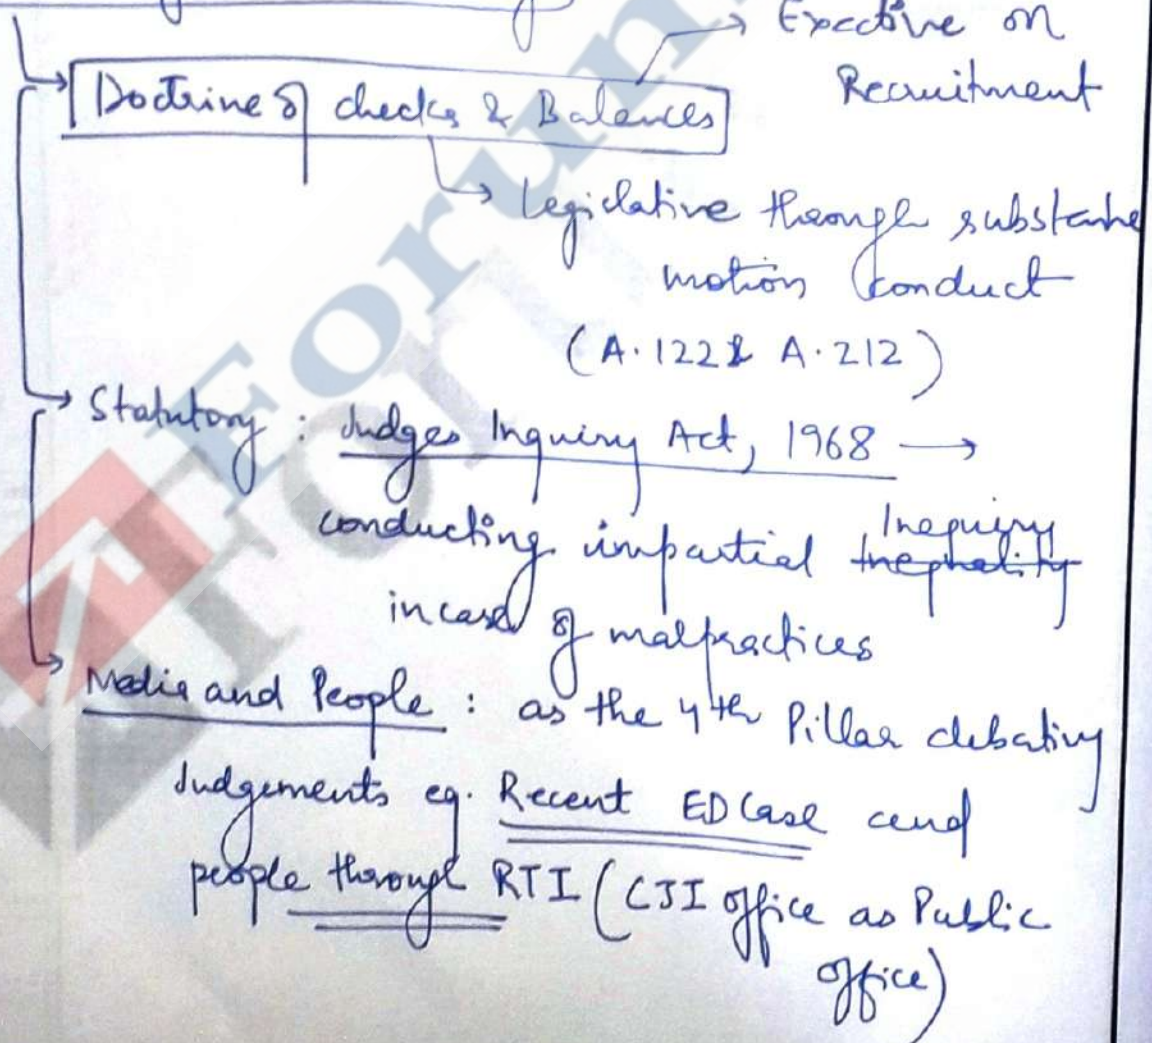 Exective on
Recruitment
Doctrine of checks & Balances
Legislative through substantive
motion conduct
(A.122 & A.212)
Statutory : Judges Inquiry Act, 1968 →
Inequiry
conducting impartial
in case of malpractices
Media and People : as the 4th Pillar debating
Judgements eg. Recent ED Case and
people through RTI (CJI office as Public
office)
Forum